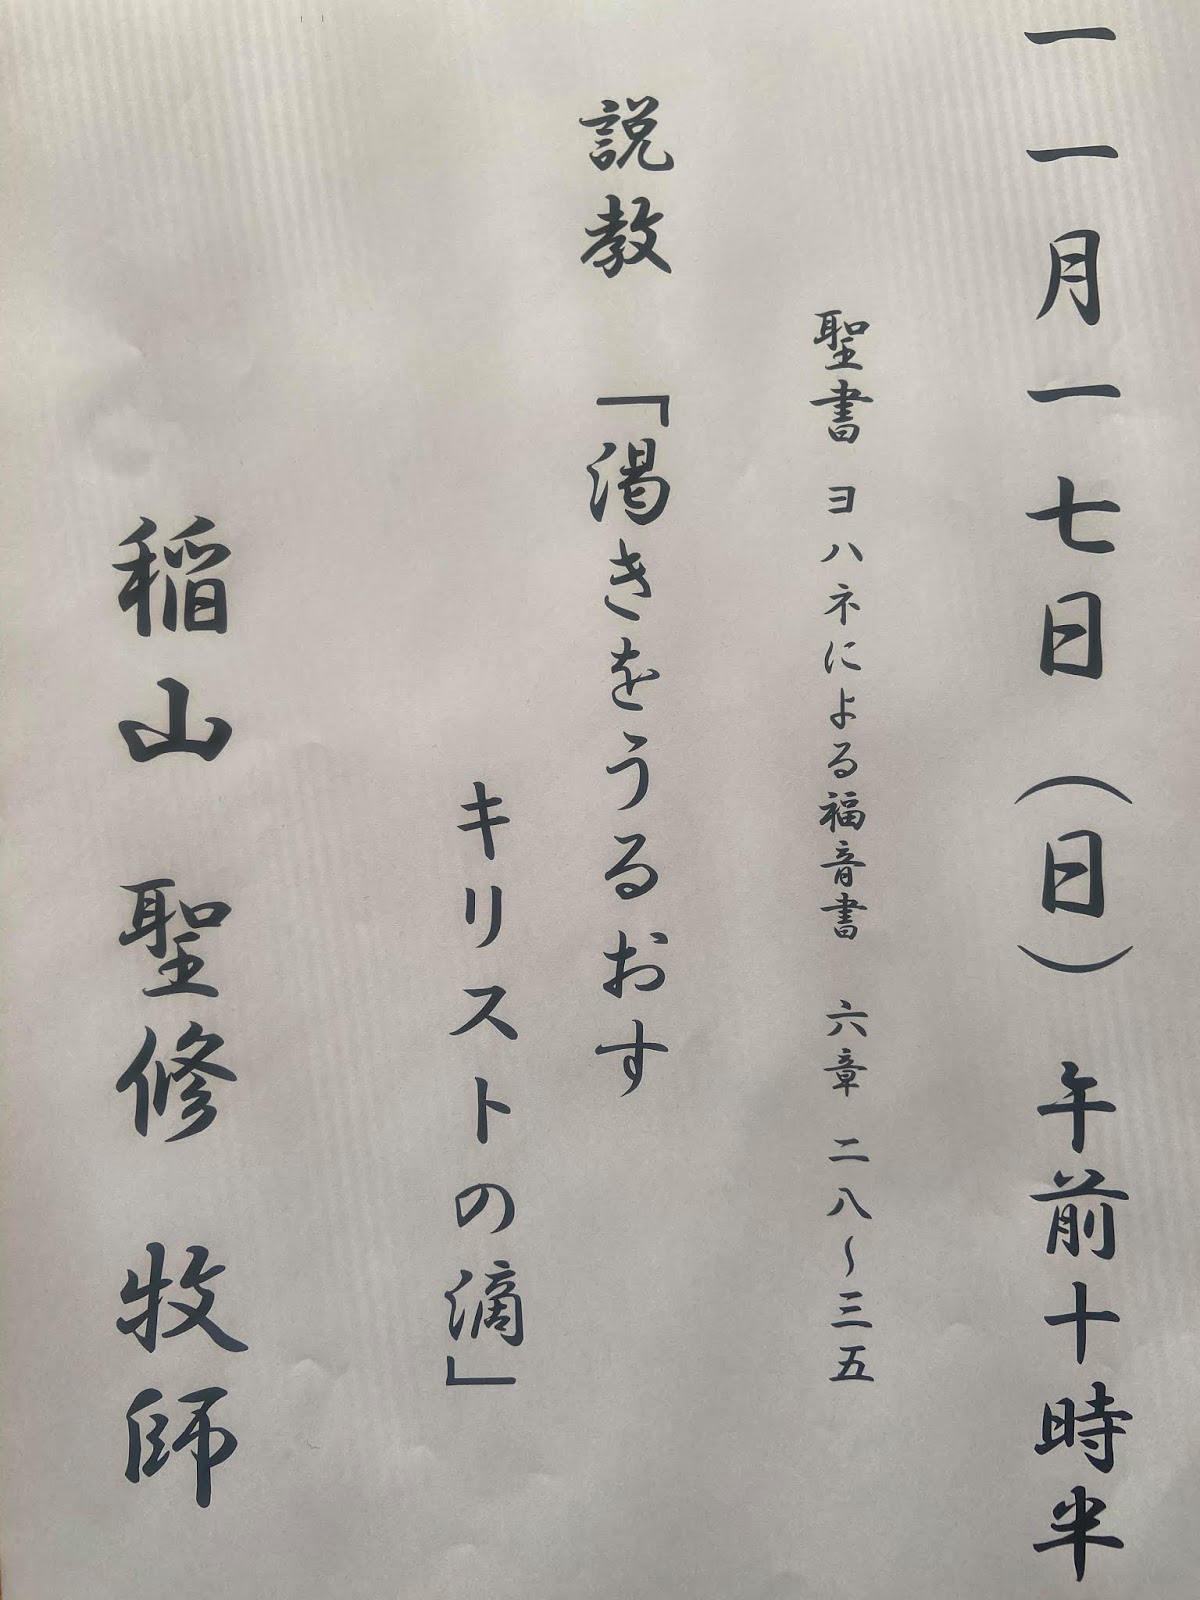 一一月一七日（日） 午前十時半
聖書 ヨハネによる福音書 六章 二八～三五
説教 「渇きをうるおす
キリストの滴」
稲山 聖修 牧師